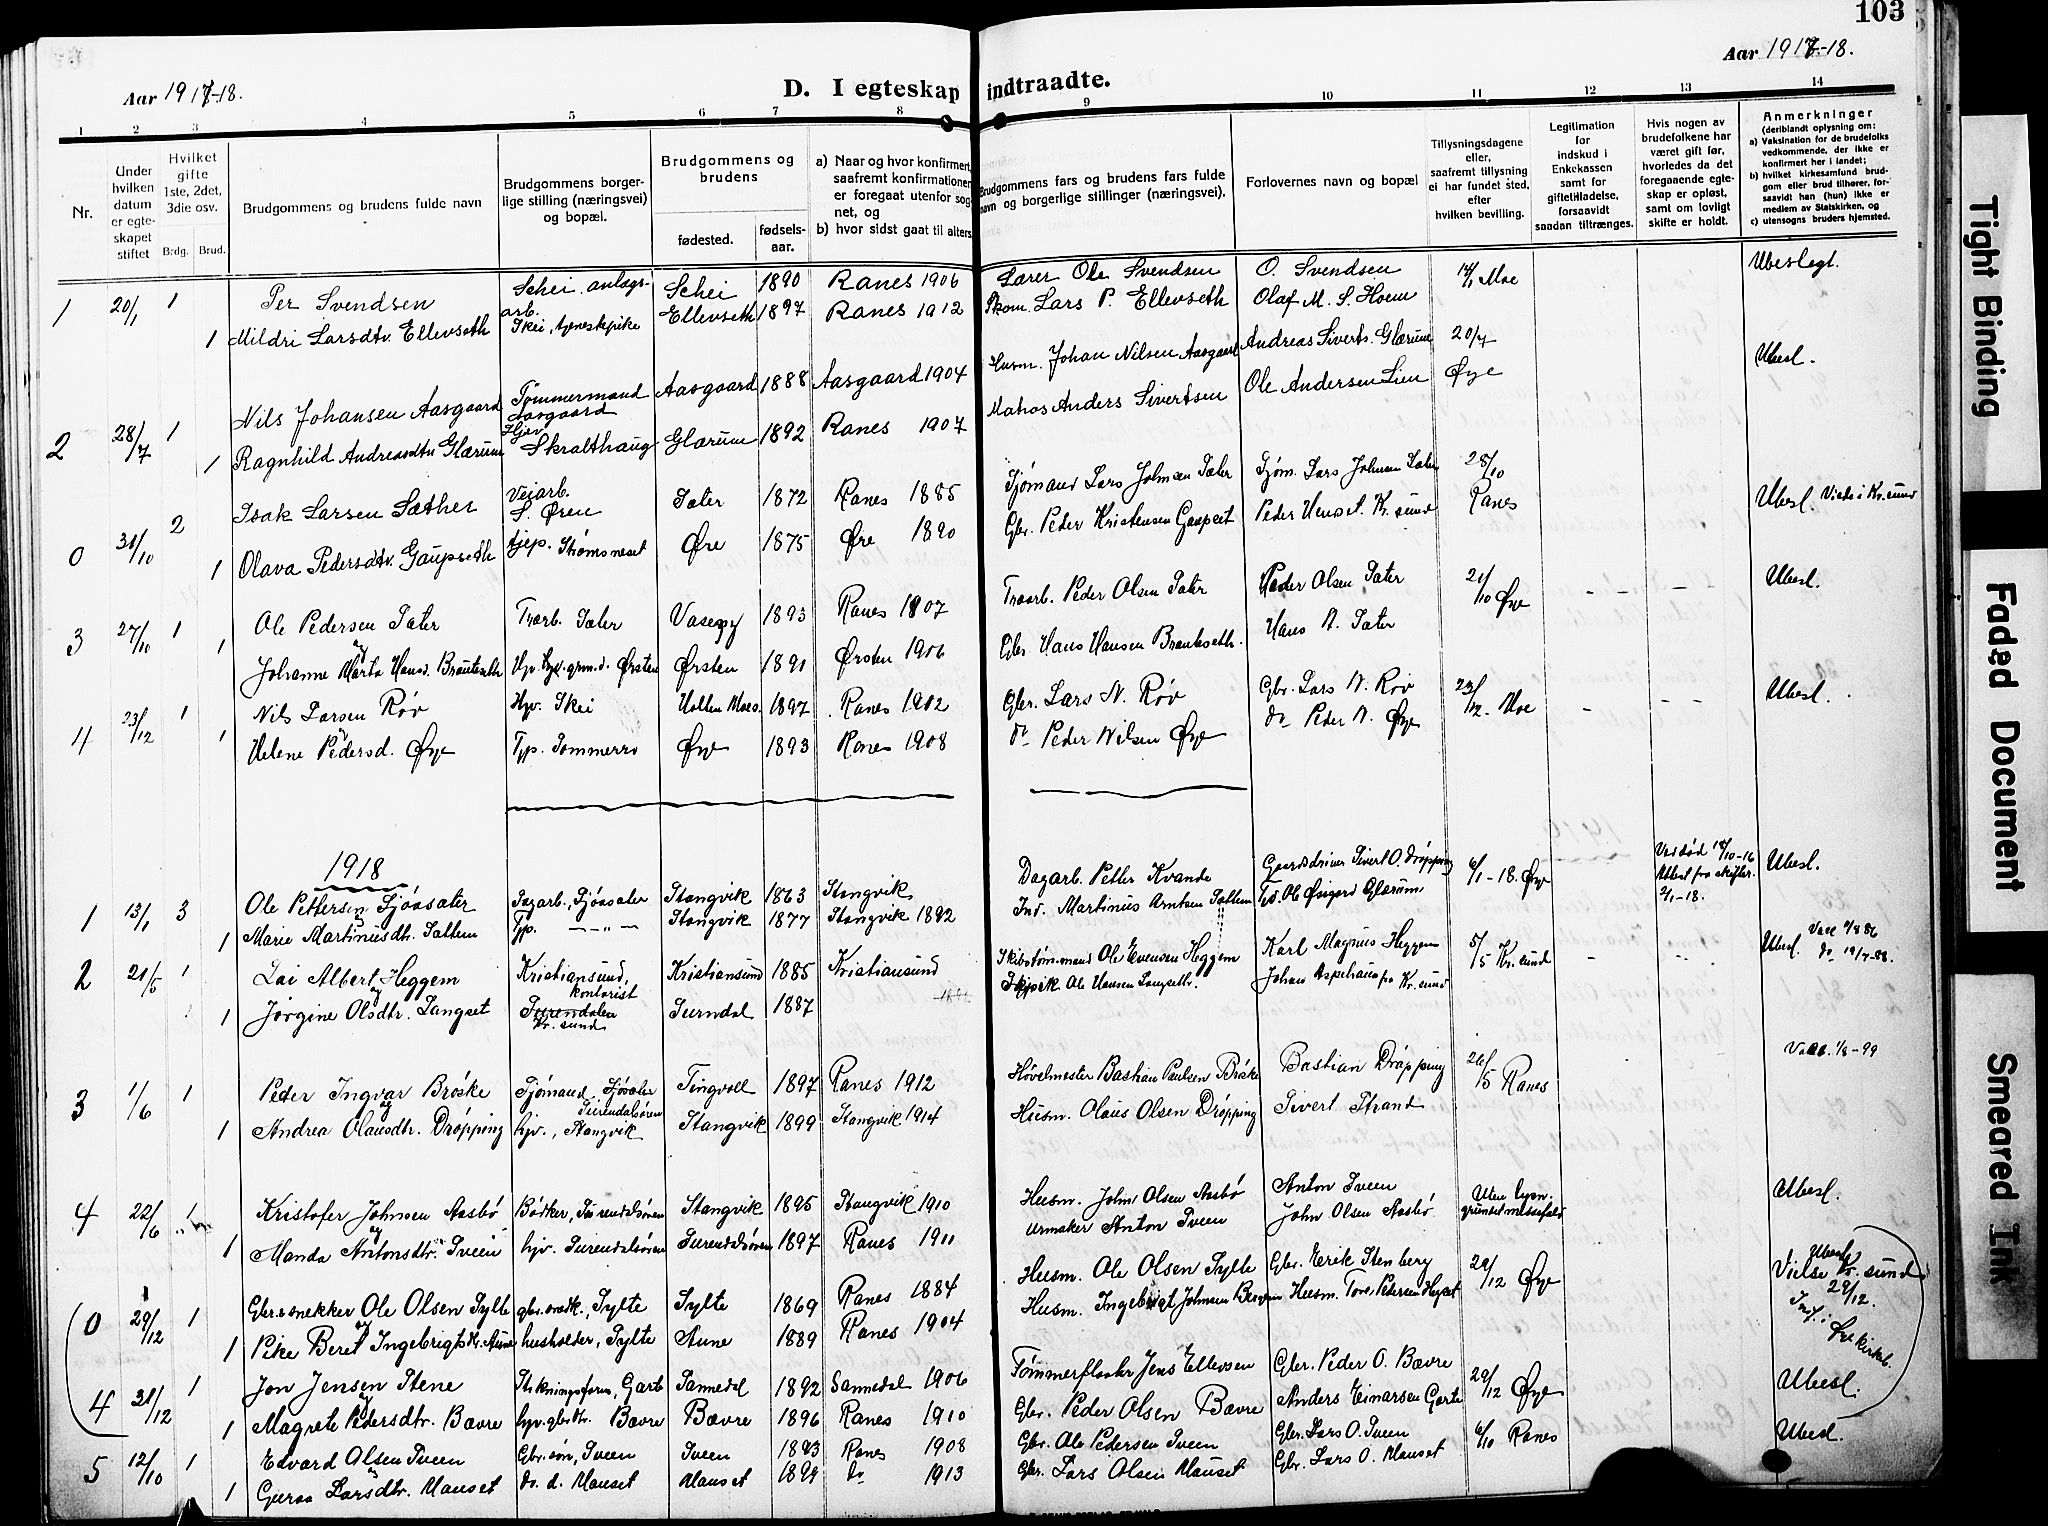 103
Aar 1917-18.
Aar 1917-18.
D. I egteskap indtraadte.
1 2 3 4 5 6 7 8 9 10 11 12 13 14
Nr.
Under hvilken datum er egteskapet stiftet
Hvilket gifte 1ste, 2det, 3die osv.
Brdg. Brud.
Brudgommens og brudens fulde navn
Brudgommens borgerlige stilling (næringsvei) og bopæl.
Brudgommens og brudens
fødested.
fødselsaar.
a) Naar og hvor konfirmert, saafremt konfirmationen er foregaat utenfor sognet, og
b) hvor sidst gaat til alters
Brudgommens fars og brudens fars fulde navn og borgerlige stillinger (næringsvei).
Forlovernes navn og bopæl
Tillysningsdagene eller, saafremt tillysning ei har fundet sted, efter hvilken bevilling.
Legitimation for indskud i Enkekassen samt for giftetilladelse, forsaavidt saadan tiltrænges.
Hvis nogen av brudefolkene har været gift før, hvorledes da det foregaaende egteskap er opløst, samt om lovligt skifte er holdt.
Anmerkninger
(deriblandt oplysning om:
a) Vaksination for de brudefolks vedkommende, der ikke er konfirmert her i landet;
b) hvilket kirkesamfund brudgom eller brud tilhører, forsaavidt han (hun) ikke er medlem av Statskirken, og
c) utensogns bruders hjemsted.
1 20/1 1 Per Svendsen Schei, anlægsarb. Schei 1890 Ranes 1906 Lærer Ole Svendsen O. Svendsen 14/1 Moe Ubeslegt.
1 Mildri Larsdtr. Ellevseth Skei, tjenestepike Ellevseth 1897 Ranes 1912 Lars P. Ellevseth Olaf M. S. Hoem
2 28/7 1 Nils Johansen Aasgaard Tømmermand Aasgaard Aasgaard 1888 Aasgaard 1904 Husm. Johan Nilsen Aasgaard Andreas Siverts. Glærum 20/7 Øye Ubesl.
1 Ragnhild Andreasdtr Glærum Hjev. Skralthaug Glærum 1892 Ranes 1907 Anders Sivertsen Ole Andersen Lien
0 31/10 2 Isak Larsen Sæther Veiarb. S. Øren Sæter 1872 Ranes 1885 Sjømand Lars Johnsen Sæter Sjøm. Lars Johnsen Sæter 28/10 Ranes Ubesl. Viede i Kr.sund
1 Olava Pedersdtr. Gaupseth Strømsneset Øre 1875 Øre 1890 Gbr. Peder Kristensen Gaupset Peder Henset Kr.sund
3 27/10 1 Ole Pedersen Sæter Sæter 1893 Ranes 1907 Peder Olsen Sæter Peder Olsen Sæter 21/10 Øye Ubesl.
1 og Johanne Marta Hansd. Brauteseth Ørsten Ørsten 1891 Ørsten 1906 Gbr. Hans Hansen Brauteseth. Hans N. Sæter
4 23/12 1 Nils Larsen Røv Skei 1897 Ranes 1902 Gbr. Lars N. Røv Gbr. Lars N. Røv 23/12 Moe Ubesl.
1 og Helene Pedersd. Øye Typ. Sommerro Øye 1893 Ranes 1908 do Peder Nilsen Øye do Peder N. Øye
1918
1 13/1 3 Ole Pettersen Sjøasæter Dagarb., Sjøasæter Stangvik 1863 Stangvik Dagarb. Petter Kvande Gaardsdriver Sivert O. Drøpping 6/1-18. Øye Ubesl.
1 og Marie Martinusdtr. Saltem Typ. — „ — Stangvik 1877 Stangvik 1892 Ind. Martinus Arntsen Saltem Glærum 2/1-18.
2 21/5 1 Lai Albert Heggem Kristiansund, kontorist Kristiansund 1885 Kristiansund Skibstømmand Ole Evensen Heggem Karl Magnus Heggem 5/5 Kr.sund Ubesl.
1 og Jørgine Olsdtr. Langset Surendalen Kr.sund Surndal 1887 Ole Hansen Langseth. Johan Aspehaug fra Kr.sund
3 1/6 1 Peder Ingvar Brøske Sjømand, Sjøsæter Surendalsøren Tingvoll 1897 Ranes 1912 Høvelmester Bastian Paulsen Brøske Bastian Drøpping 26/5 Ranes Vacc. 1/8-99
1 og Andrea Olausdtr. Drøpping hjv., Stangvik Stangvik 1899 Stangvik 1914 Husm. Olaus Olsen Drøpping Sivert Strand
4 22/6 1 Kristofer Johnsen Aasbø Bødker, Surendalsøren Stangvik 1895 Stangvik 1910 Husm. John Olsen Aasbø Anton Sveen Uten lysn. grundet messefald Ubesl.
1 og Manda Antonsdtr. Sveen hjv. Surendalsøren Surendalsøren 1897 Ranes 1911 Urmaker Anton Sveen John Olsen Aasbø
0 29/12 1 Gbr. snekker Ole Olsen Sylte gbr. snedk., Sylte Sylte 1869 Ranes 1884 Husm. Ole Olsen Sylte Gbr. Erik Stenberg 22/12 Øye Ubesl. Vielse Kr.sund 29/12.
1 og Pike Beret Ingebrigtsdtr. Aune husholder, Sylte Aune 1889 Ranes 1904 Husm. Ingebrigt Johnsen Husm. Tore Petersen
4 31/12 1 Jon Jensen Stene Sannedal 1892 Sannedal 1906 Tømmerfløter Jens Ellevsen Gbr. Peder O. Bævre 29/12 Øye Ubesl.
1 og Magrete Pedersdtr. Bævre hjv. gbrdtr. Bævre Bævre 1896 Ranes 1910 Gbr. Peder Olsen Bævre Anders Einarsen Garte
5 12/10 1 Edvard Olsen Sveen Gbr. søn, Sveen Sveen 1883 Ranes 1908 Gbr. Ole Pedersen Sveen Gbr. Lars O. Sveen 6/10 Ranes Ubesl.
1 og Guroa Larsdtr. Mauset do. d. Mauset Mauset 1899 do 1913 Gbr. Lars Olsen Mauset Gbr. Lars O. Mauset
Tight Binding
Faded Document
Smeared Ink